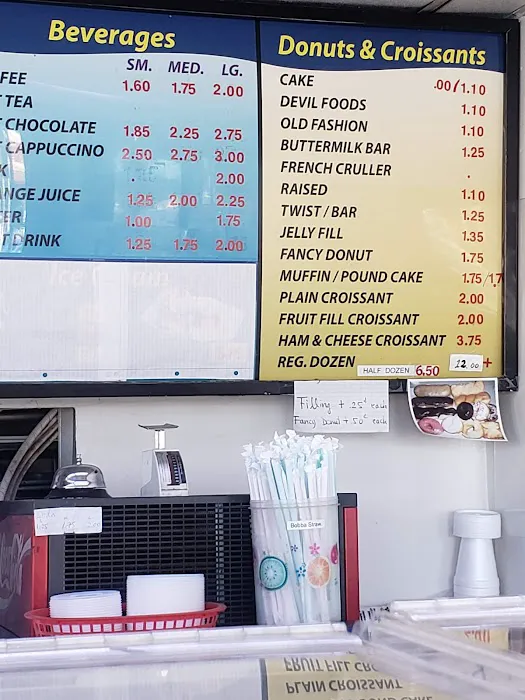 Beverages
SM. MED. LG.
FEE 1.60 1.75 2.00
TEA
CHOCOLATE 1.85 2.25 2.75
CAPPUCCINO 2.50 2.75 3.00
K 2.00
NGE JUICE 1.25 2.00 2.25
ER 1.00 1.75
T DRINK 1.25 1.75 2.00
Ice Cream
Donuts & Croissants
CAKE .00/1.10
DEVIL FOODS 1.10
OLD FASHION 1.10
BUTTERMILK BAR 1.25
FRENCH CRULLER
RAISED 1.10
TWIST / BAR 1.25
JELLY FILL 1.35
FANCY DONUT 1.75
MUFFIN / POUND CAKE 1.75/1.7
PLAIN CROISSANT 2.00
FRUIT FILL CROISSANT 2.00
HAM & CHEESE CROISSANT 3.75
REG. DOZEN HALF DOZEN 6.50 12.00 +
Filling + .25¢ each
Fancy Donut + 50¢ each
Bobba Straw
FRUIT FILL CRO
PLAIN CROISSANT